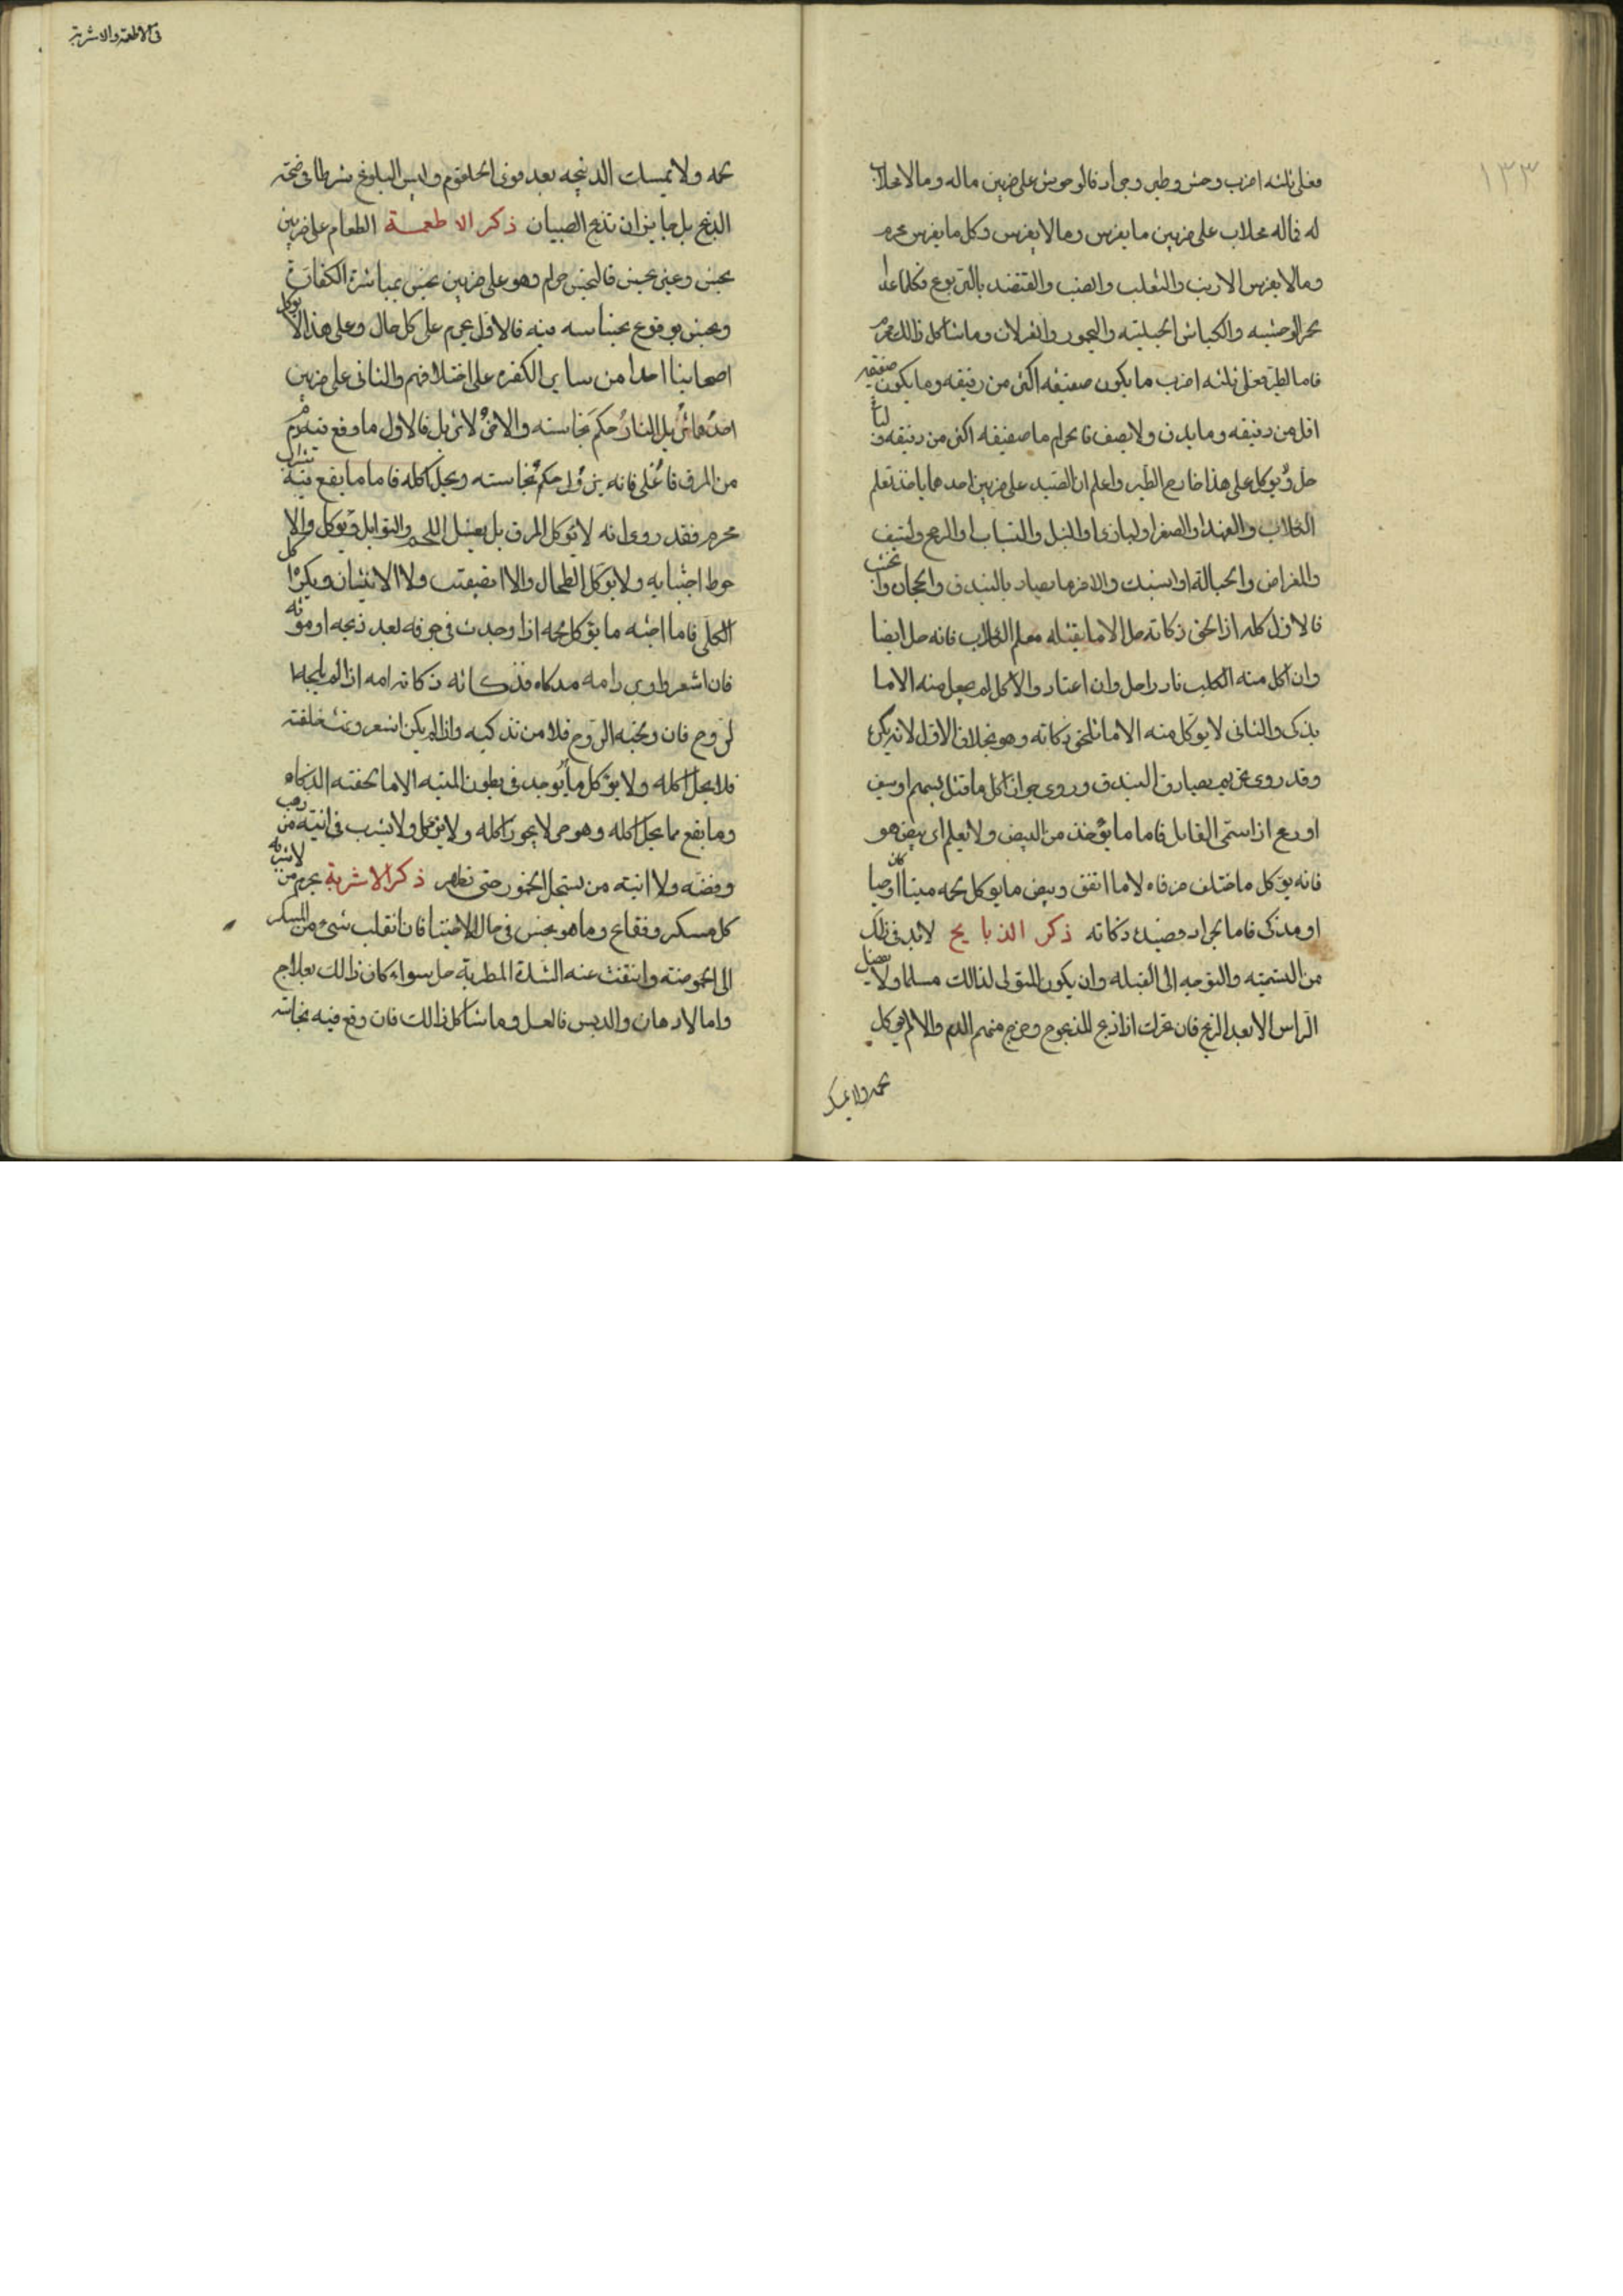 ١٣٣
فعلى ثلثه اضرب وحش وطير وجراد فالوحوش على ضربين ماله ومالا مخلاب
له فماله مخلاب على ضربين ما يفرس وما لا يفرس وكل ما يفرس محرم
وما لا يفرس الارنب والثعلب والضب والقنفذ بالتربوع فكلما عدا
حمر الوحشيه والكباش الجبليته واليحمور والغزلان وما شاكل ذالك محرم
فاما الطير فعلى ثلثه اضرب ما يكون صفيفه اكثر من دفيفه وما يكون صفيفه
اقل من دفيفه وما يدف ولا يصف فالحرام ما صفيفه اكثر من دفيفه
حل ويوكل على هذا خارج الطير واعلم ان الصيد على ضربين احدهما ياخذ بتعلم
الكلاب والفهد او الصقر او البازى او النبل والنشاب او الرمح والسيف
والمغراض والحباله او الشبك والاخر ما يصاد بالبندق والحجاره
فالاول كله اذا لحق ذكاته حل الا ما يقتله معلم الكلاب فانه حل ايضا
وان اكل منه الكلب نادرا حل وان اعتاد والاكل لم يحل منه الا ما
يذكى والثانى لا يوكل منه الا ما يلحق ذكاته وهو بخلاف الاول لانه يكره
وقد روى تحريم يصاد ق البندق وروى جواز اكل ما قتل بسهم او سيف
او رمح اذا سمى القاتل فاما ما يؤخذ من البيض ولا يعلم اى بيض هو
فانه يوكل ما ختلف طرفاه لا ما اتفق وبيض ما يوكل لحمه ميتا كان او حيا
او مذكى فاما الجراد فصيده ذكاته ذكر الذبايح لابد فى ذلك
من التسميته والتوجه الى القبله وان يكون المتولى لذالك مسلما ولا يفصل
الراس الا بعد الذبح فان تحركت اذا ذبح المذبوح وخرج منهم الدم والا لم يوكل
لحمه ولا يمسك
فى الاطعمة والاشربة
لحمه ولا يمسك الذبيحه بعد فرى الحلقوم وليس البلوغ شرطا فى صحته
الذبح بل جايز ان تذبح الصبيان ذكر الاطعمة الطعام على ضربين
نجس وغير نجس فالنجس حرام وهو على ضربين نجس بمباشرة الكفار
ونجس بوقوع نجاسه فيه فالاول محرم على كل حال وعلى هذا لا يوكل
اصحابنا احدا من ساير الكفره على اختلافهم والثانى على ضربين
احدهما تزيل النار حكم نجاسته والاخر لا تزيل فالاول ما وقع فيه دم
من المرق فاغلى فانه يزول حكم نجاسته ويحل اكله فاما ما يقع فيه
محرم فقد روى انه لا يوكل المرق بل يغسل اللحم والتوابل ويوكل والا
حوط اجتنابه ولا يوكل الطحال والا القضيب ولا الانثيان ويكره اكل
الكلى فاما اجنه ما يوكل لحمه اذا وجدت فى جوفه بعد ذبحه او موته
فان اشعر او اوبر وامه مذكاه فذكاته ذكاة امه اذا لم يلجها
الروح فان ولجته الروح فلا من تذكيه واذا لم يكن اشعر وتمت خلقته
فلا يحل اكله ولا يؤكل ما يوجد فى بطون الميته الا ما لحقته الذكاه
وما يقع مما يحل اكله وهو حى لا يجوز اكله ولا يؤكل ولا يشرب فى انيته من ذهب
وفضه ولا انيته من يستحل الخمور حتى تطهر ذكر الاشربة يحرم من الاشربه
كل مسكر وفقاع وما هو نجس فى حال الاختيار فان انقلب شىء من المسكر
الى الحموضته وانتفت عنه الشدة المطربة حل سواء كان ذالك بعلاج
واما الادهان والدبس فالعسل وما شاكل ذالك فان وقع فيه نجاسته